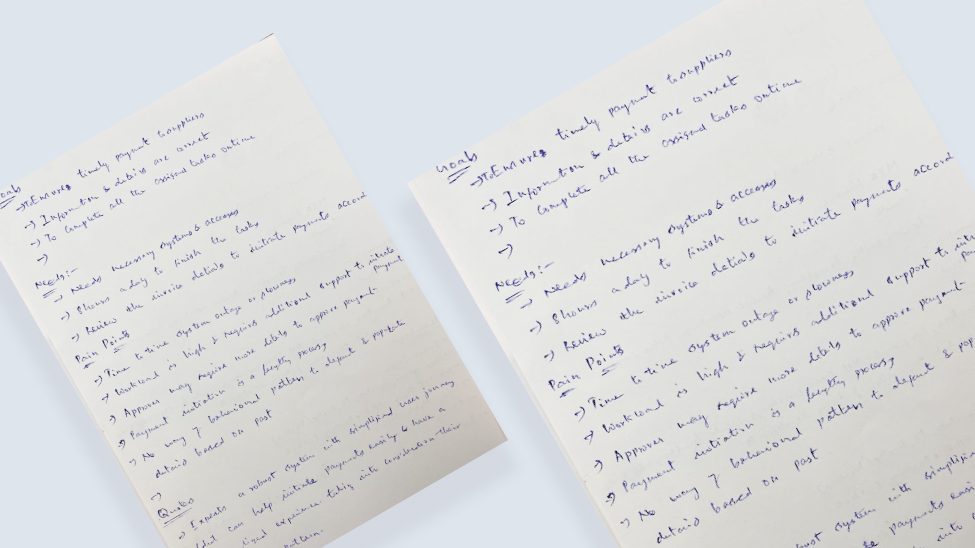 Goals
→ To Ensures timely payment to suppliers
→ Information & details are correct
→ To Complete all the assigned tasks ontime
→
Needs:-
→ Needs necessary systems & accesses
→ 8hours a day to finish the tasks
→ Review the invoice details to initiate payments accord
Pain Points
→ Time to time system outage or slowness
→ Workload is high & requires additional support to initiate payment
→ Approver may require more details to approve payment
→ Payment initiation is a lengthy process,
→ No way of behavioral pattern to default & populate
details based on past
→
Quotes
→ Expects a robust system with simplified user journey
that can help initiate payments easily & have a
experience taking into consideration their
pattern.
Goals
→ To Ensures timely payment to suppliers
→ Information & details are correct
→ To Complete all the assigned tasks ontime
→
Needs:-
→ Needs necessary systems & accesses
→ 8hours a day to finish the tasks
→ Review the invoice details to initiate payments accord
Pain Points
→ Time to time system outage or slowness
→ Workload is high & requires additional support to
→ Approver may require more details to approve payment
→ Payment initiation is a lengthy process,
→ No way of behavioral pattern to default &
details based on past
robust system with
payments
into